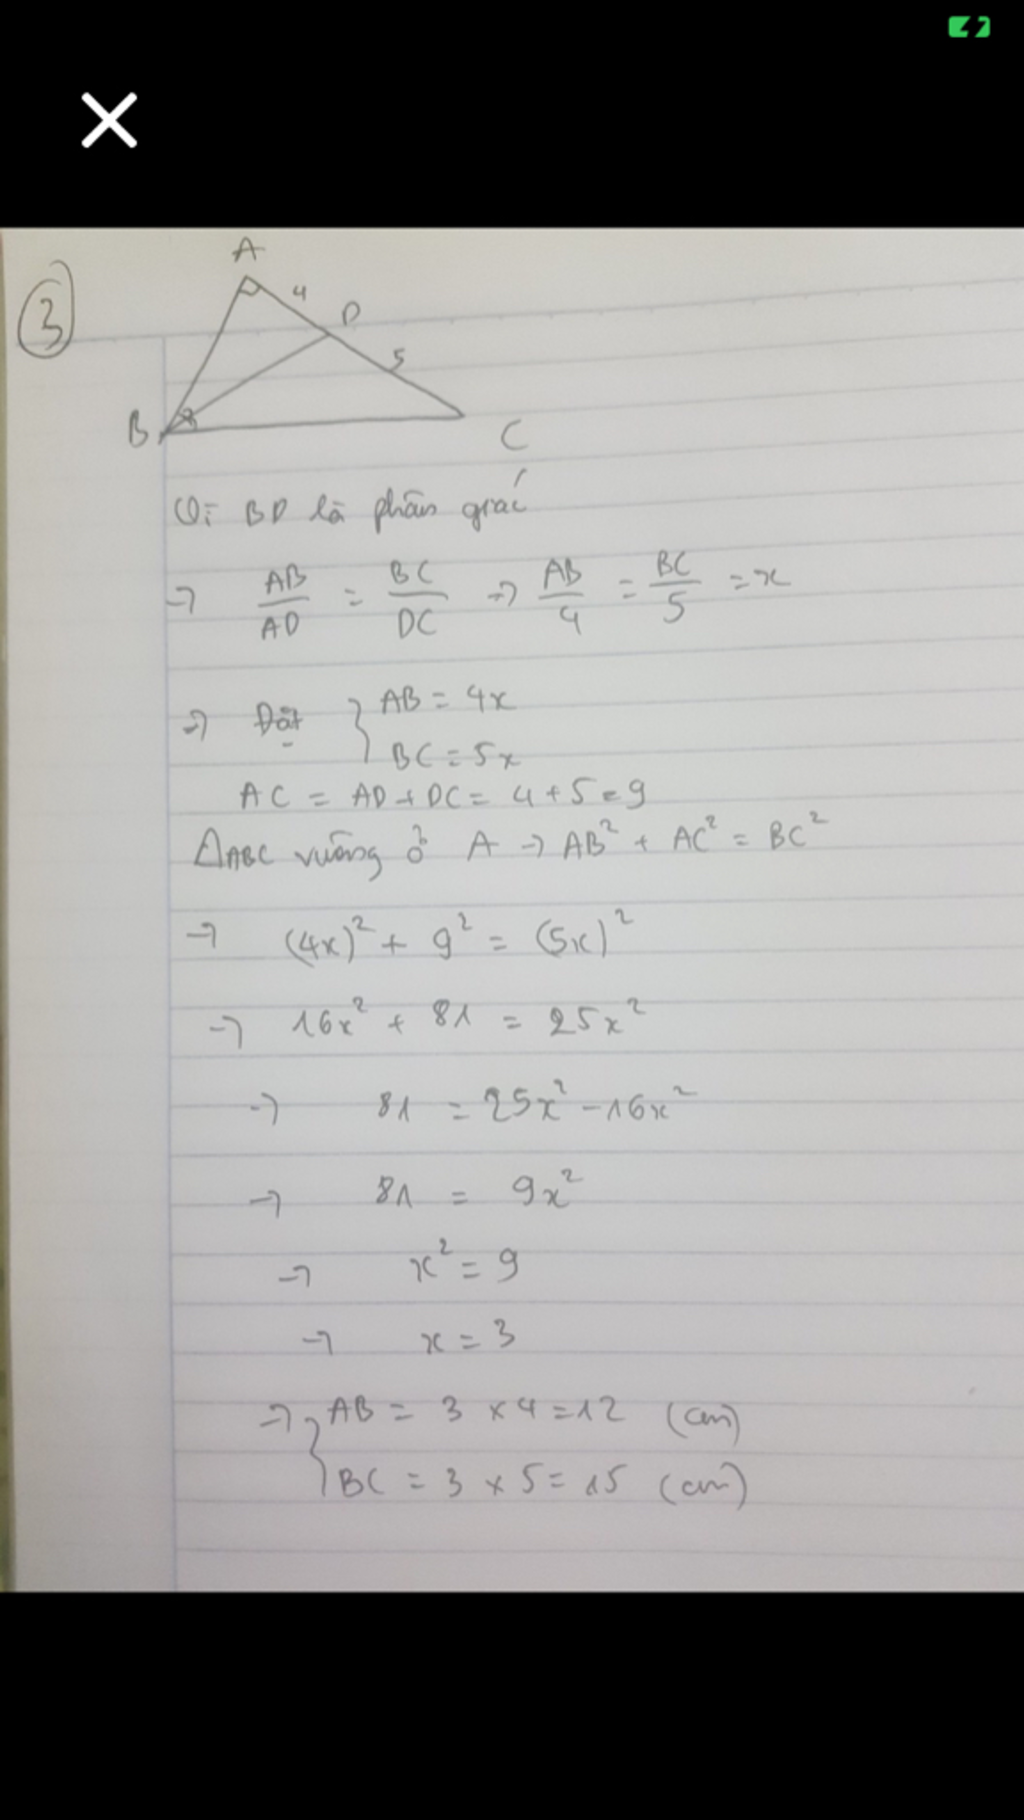 3
A
4
D
5
B
C
Vì BD là phân giác
→ AB/AD = BC/DC → AB/4 = BC/5 = x
→ Đặt { AB = 4x
BC = 5x
AC = AD + DC = 4 + 5 = 9
ΔABC vuông ở A → AB² + AC² = BC²
→ (4x)² + 9² = (5x)²
→ 16x² + 81 = 25x²
→ 81 = 25x² - 16x²
→ 81 = 9x²
→ x² = 9
→ x = 3
→ { AB = 3 × 4 = 12 (cm)
BC = 3 × 5 = 15 (cm)